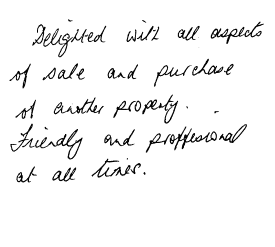 Delighted with all aspects
of sale and purchase
of another property.
Friendly and proffesional
at all times.